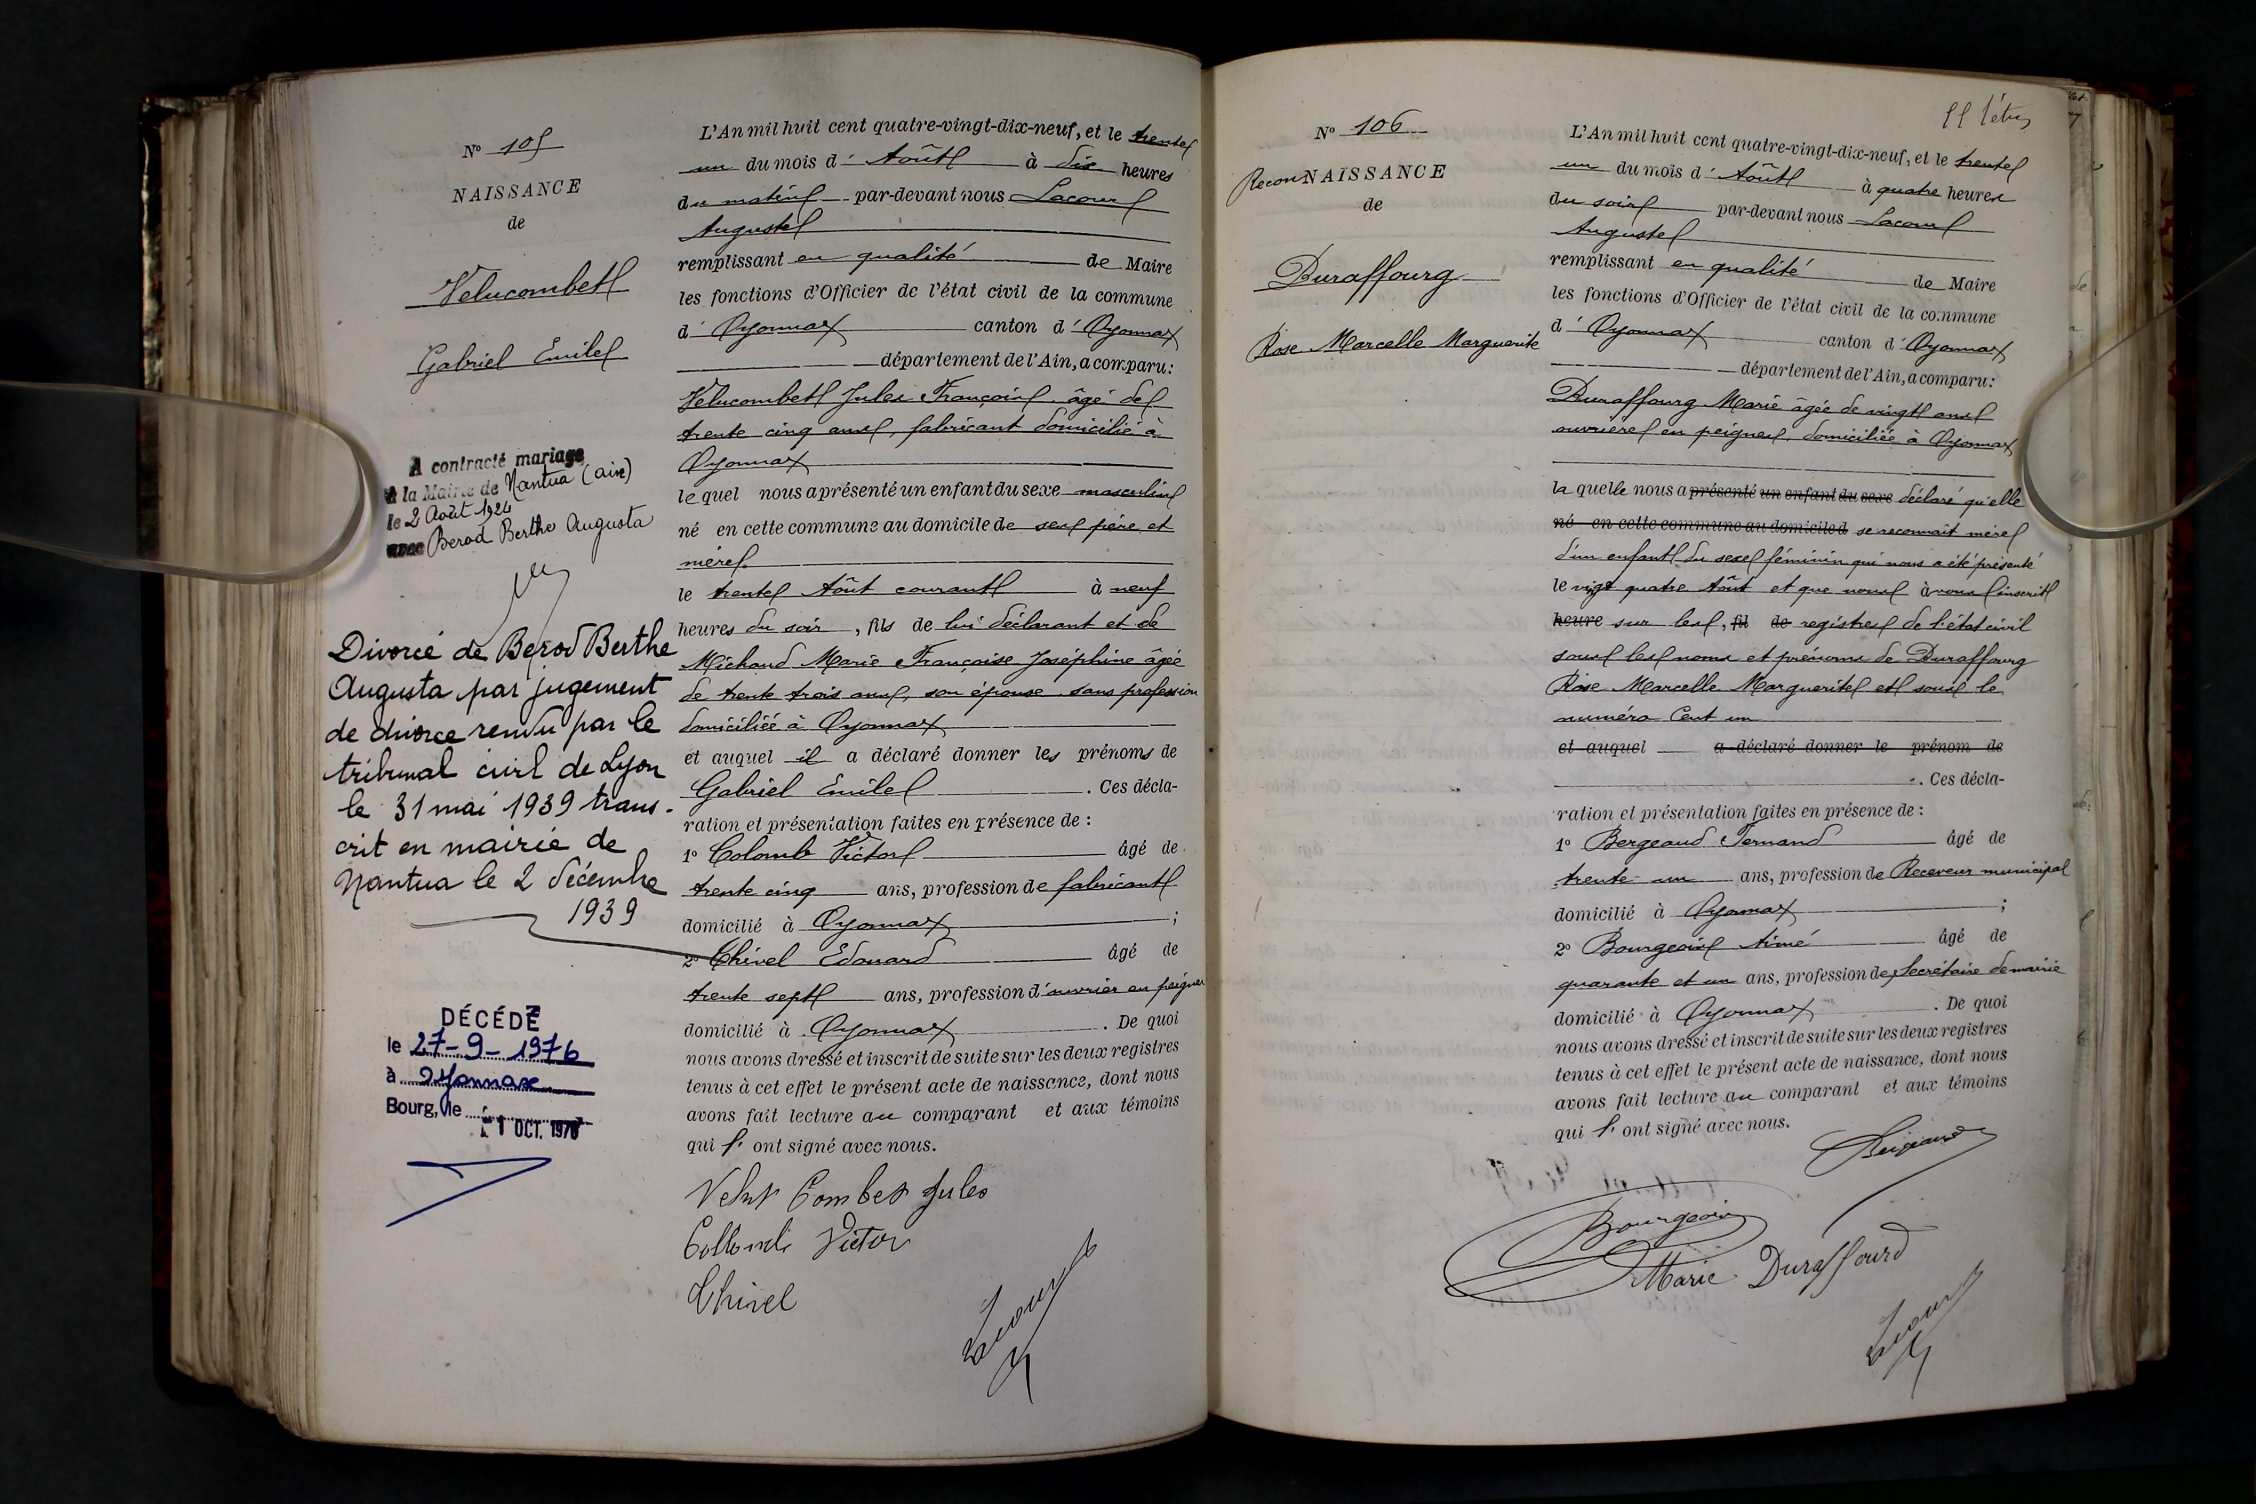 N° 105
NAISSANCE
de
Velucombet
Gabriel Emile
A contracté mariage
à la Mairie de Nantua (ain)
le 2 Août 1924
avec Berod Berthe Augusta
Divorcé de Berod Berthe
Augusta par jugement
de divorce rendu par le
tribunal civil de Lyon
le 31 mai 1939 trans-
crit en mairie de
Nantua le 2 décembre
1939
DÉCÉDÉ
le 27-9-1976
à oyonnax
Bourg, le 1 OCT. 1976
L'An mil huit cent quatre-vingt-dix-neuf, et le trente
un du mois d'Août à dix heures
du matin par-devant nous Lacour
Auguste
remplissant en qualité de Maire
les fonctions d'Officier de l'état civil de la commune
d'Oyonnax canton d'Oyonnax
département de l'Ain, a comparu:
Velucombet Jules François âgé de
trente cinq ans, fabricant domicilié à
Oyonnax
lequel nous a présenté un enfant du sexe masculin
né en cette commune au domicile de ses père et
mère.
le trente Août courant à neuf
heures du soir, fils de lui déclarant et de
Michaud Marie Françoise Joséphine âgée
de trente trois ans, son épouse sans profession
domiciliée à Oyonnax
et auquel il a déclaré donner les prénoms de
Gabriel Emile. Ces décla-
ration et présentation faites en présence de:
1° Colomb Victor âgé de
trente cinq ans, profession de fabricant
domicilié à Oyonnax;
2° Chivel Edouard âgé de
trente sept ans, profession d'ouvrier en peignes
domicilié à Oyonnax. De quoi
nous avons dressé et inscrit de suite sur les deux registres
tenus à cet effet le présent acte de naissance, dont nous
avons fait lecture au comparant et aux témoins
qui l'ont signé avec nous.
Velut Combet Jules
Victor
Chivel
Lacour
11 l'être
N° 106
ReconNAISSANCE
de
Duraffourg
Rose Marcelle Marguerite
L'An mil huit cent quatre-vingt-dix-neuf, et le trente
un du mois d'Août à quatre heures
du soir par-devant nous Lacour
Auguste
remplissant en qualité de Maire
les fonctions d'Officier de l'état civil de la commune
d'Oyonnax canton d'Oyonnax
département de l'Ain, a comparu:
Duraffourg Marie âgée de vingt ans
ouvrière en peignes, domiciliée à Oyonnax
laquelle nous a présenté un enfant du sexe déclaré qu'elle
né en cette commune au domicile d se reconnaît mère
d'un enfant du sexe féminin qui nous a été présenté
le vigt quatre Août et que nous avons inscrit
heure sur les, fil de registres de l'état civil
sous les noms et prénoms de Duraffourg
Rose Marcelle Marguerite et sous le
numéro Cent un
et auquel a déclaré donner le prénom de
. Ces décla-
ration et présentation faites en présence de:
1° Bergeaud Fernand âgé de
trente un ans, profession de Receveur municipal
domicilié à Oyonnax;
2° Bourgeois Aimé âgé de
quarante et un ans, profession de Secrétaire de mairie
domicilié à Oyonnax. De quoi
nous avons dressé et inscrit de suite sur les deux registres
tenus à cet effet le présent acte de naissance, dont nous
avons fait lecture au comparant et aux témoins
qui l'ont signé avec nous.
Bergeaud
Bourgeois
Marie Duraffourd
Lacour